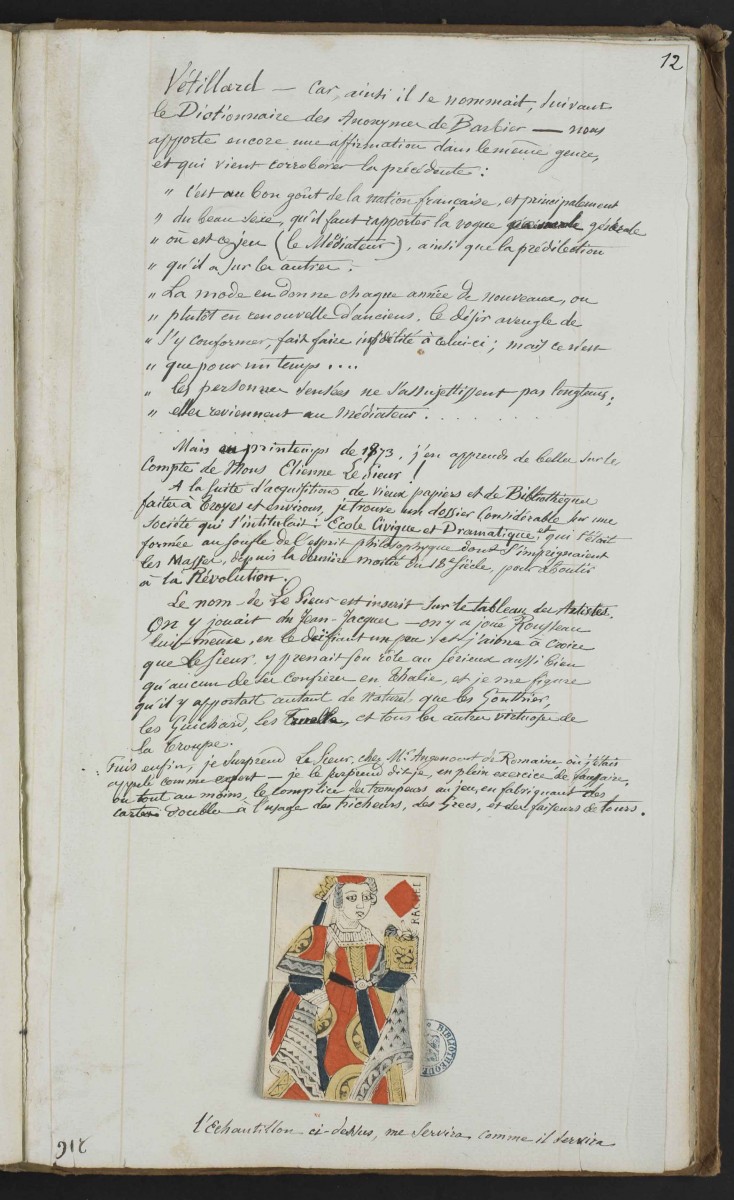 12
Vétillard — Car, ainsi il se nommait, suivant
le Dictionnaire des Anonymes de Barbier — nous
apporte encore une affirmation dans le même genre,
et qui vient corroborer la précédente :
" c'est au bon goût de la nation française, et principalement
" du beau sexe, qu'il faut rapporter la vogue générale
" où est ce jeu (le Médiateur), ainsi que la prédilection
" qu'il a sur les autres.
" La mode en donne chaque année de nouveaux, ou
" plutôt en renouvelle d'anciens. le désir aveugle de
" s'y conformer, fait faire infidélité à celui-ci ; mais ce n'est
" que pour un temps ....
" les personnes sensées ne s'assujettissent pas longtems ;
" elles reviennent au Médiateur . . . . . . .
Mais en printemps de 1873, j'en apprends de belles sur le
Compte de Mons Etienne Le Sieur !
A la suite d'acquisitions de vieux papiers et de Bibliothèques
faites à Troyes et environs, je trouve un dossier Considérable sur une
Société qui s'intitulait : Ecole Civique et Dramatique, et qui s'était
formée au souffle de l'esprit philosophique dont s'imprégnaient
les Masses, depuis la dernière moitié du 18e Siècle, pour aboutir
à la Révolution.
Le nom de Le Sieur est inscrit sur le tableau des Artistes.
On y jouait du Jean-Jacques — on y a joué Rousseau
lui-même, en le déifiant un peu : et j'aime à croire
que Le Sieur y prenait son rôle au sérieux aussi bien
qu'aucun de ses confrères en Thalie, et je me figure
qu'il y apportait autant de naturel que les Gonthier,
les Guichard, les Truelle, et tous les autres virtuoses de
la troupe.
Puis enfin, je surprend Le Sieur, chez Mr. Angenoust de Romaine où j'étais
appelé comme expert — je le surprend dit-je, en plein exercice de faussaire,
ou tout au moins, le complice des trompeurs au jeu, en fabriquant des
cartes double à l'usage des tricheurs, des Grecs, et des faiseurs de tours.
RACHEL
BIBLIOTHEQUE
l'Echantillon ci-dessus, me servira comme il servira
216